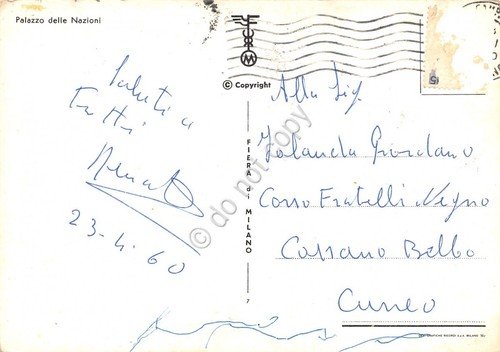 Palazzo delle Nazioni
Saluti a
Tutti
Renato
23-4-60
M
© Copyright
FIERA di MILANO
7
Alla Sig.
Jolanda Giordano
Corso Fratelli Negno
Cossano Belbo
Cuneo
do not copy